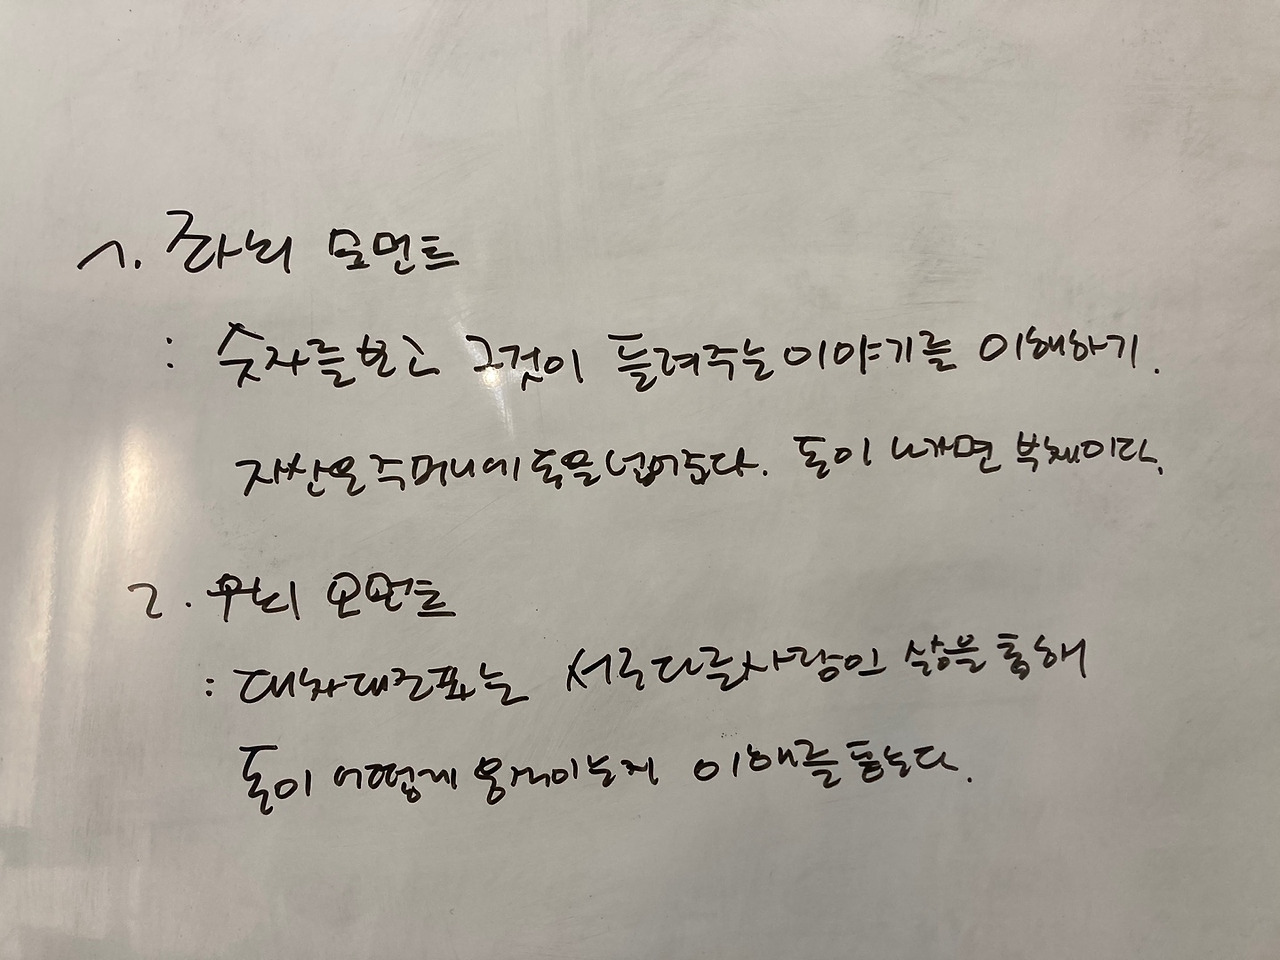 1. 좌뇌 모먼트
: 숫자를 보고 그것이 들려주는 이야기를 이해하기.
자산은 주머니에 돈을 넣어준다. 돈이 나가면 부채이다.
2. 우뇌 모먼트
: 대차대조표는 서로 다른 사람의 삶을 통해
돈이 어떻게 움직이는지 이해를 돕는다.